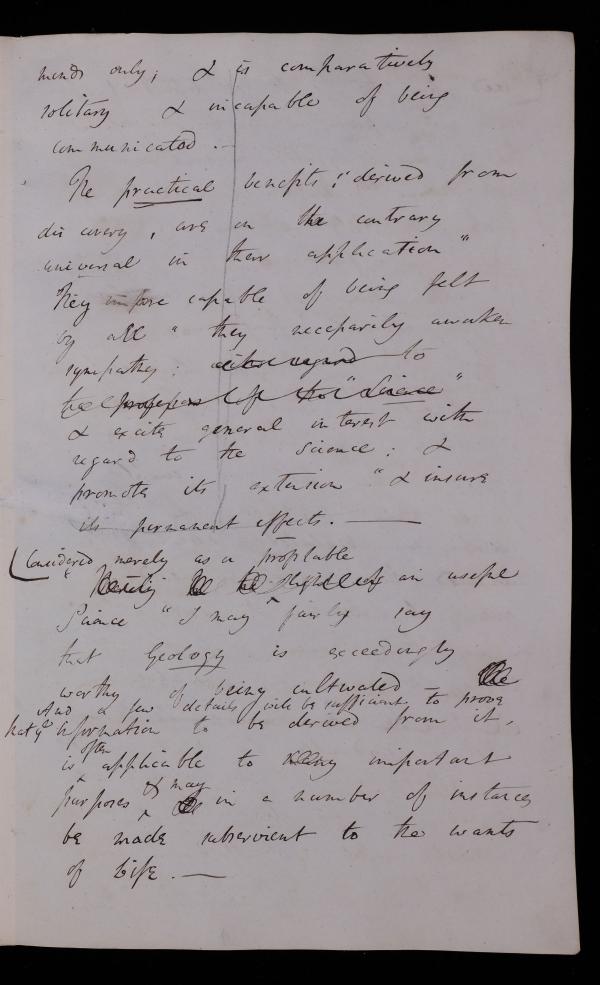 minds only; & is comparatively
solitary & incapable of being
communicated. -
The practical benefits ; "derived from
discovery, are on the contrary
universal in their application"
They are capable of being felt
by all " they necessarily awaken
sympathy : to
the professors of the "Science"
& excite general interest with
regard to the Science: &
promote its extension " & insure
its permanent effects. —
Considered merely as a profitable
an useful
Science " I may fairly say
that Geology is exceedingly
worthy of being cultivated – The
And a few details will be sufficient to prove
that ye information to be derived from it,
often
is applicable to many important
& may
purposes in a number of instances
be made subservient to the wants
of Life. —